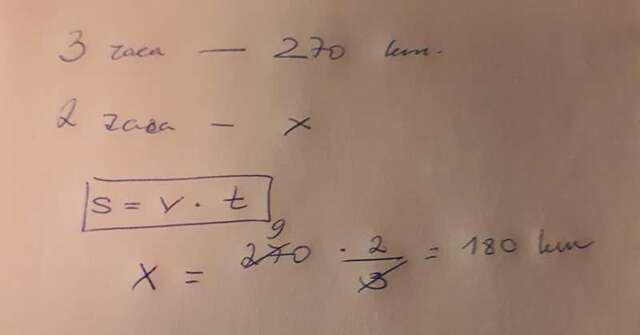 3 часа — 270 км.
2 часа — x
s = v · t
x = 270 · 2/3 = 180 км